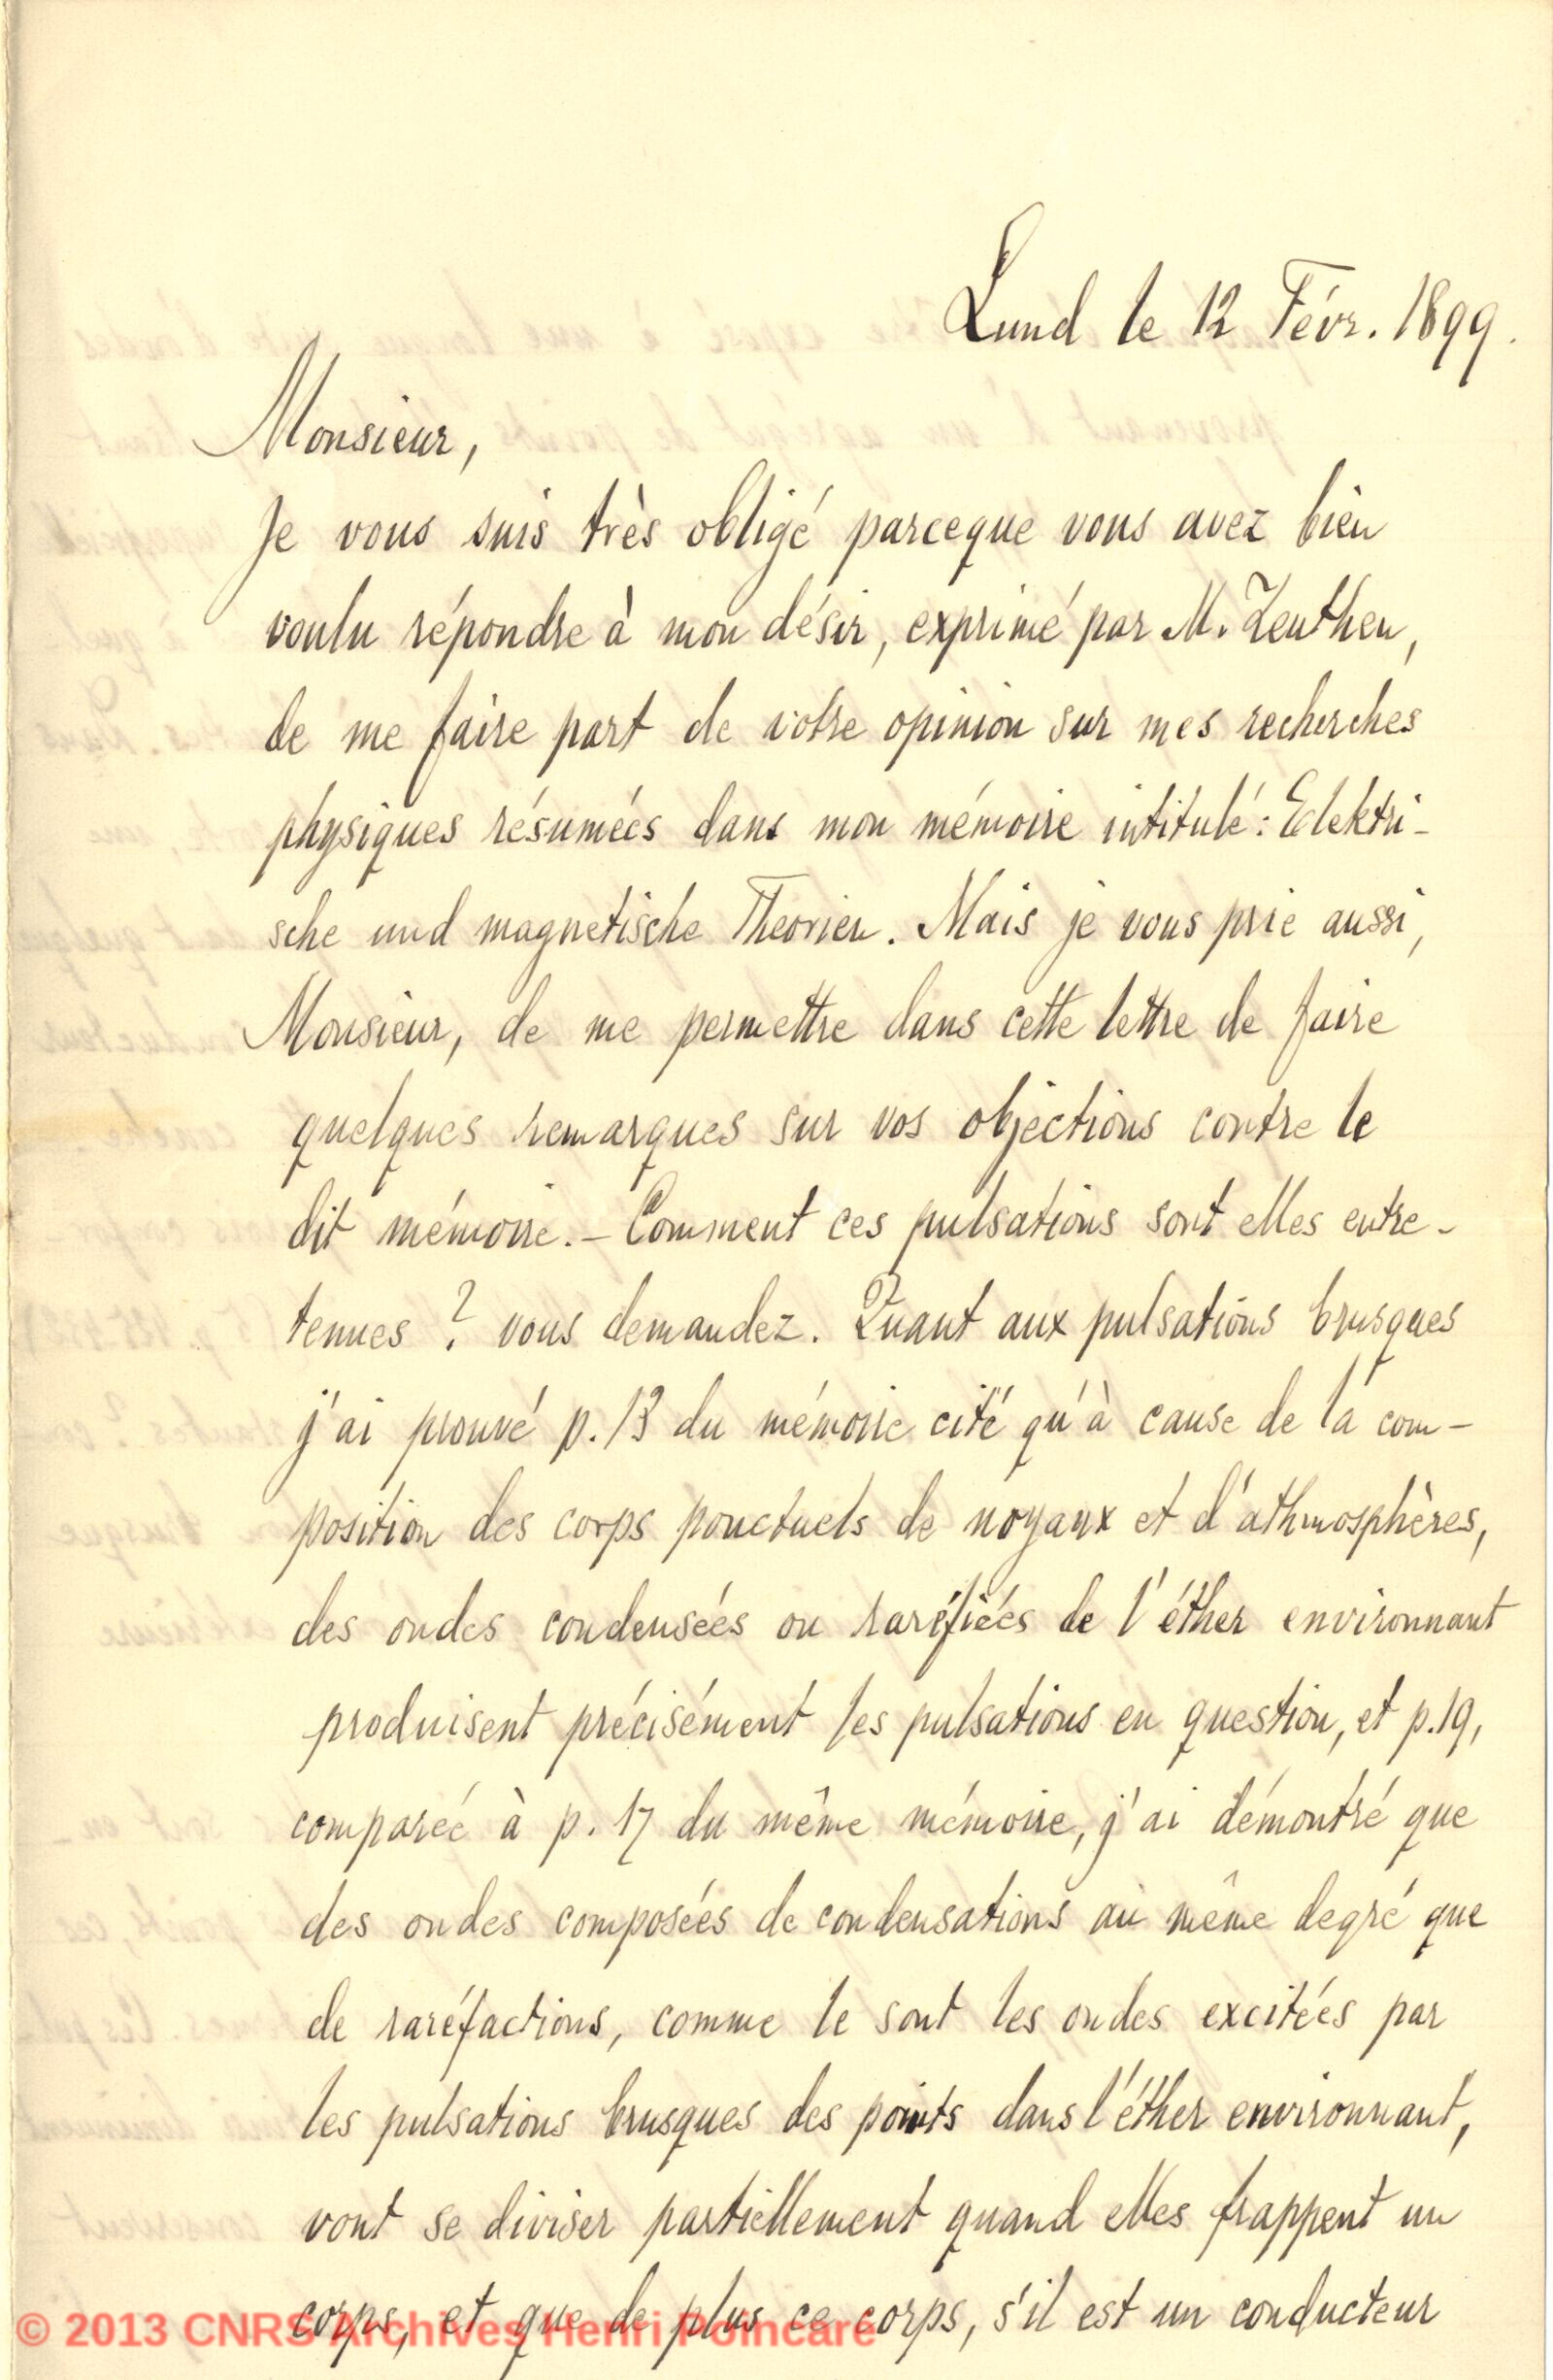 Lund le 12 Févr. 1899.
Monsieur,
Je vous suis très obligé parceque vous avez bien
voulu répondre à mon désir, exprimé par M. Zeuthen,
de me faire part de votre opinion sur mes recherches
physiques résumées dans mon mémoire intitulé: Elektri-
sche und magnetische Theorien. Mais je vous prie aussi,
Monsieur, de me permettre dans cette lettre de faire
quelques remarques sur vos objections contre le
dit mémoire. – Comment ces pulsations sont elles entre-
tenues? vous demandez. Quant aux pulsations brusques
j'ai prouvé p. 13 du mémoire cité qu'à cause de la com-
position des corps ponctuels de noyaux et d'athmosphères,
des ondes condensées ou raréfiées de l'éther environnant
produisent précisément les pulsations en question, et p. 19,
comparée à p. 17 du même mémoire, j'ai démontré que
des ondes composées de condensations au même degré que
de raréfactions, comme le sont les ondes excitées par
les pulsations brusques des points dans l'éther environnant,
vont se diviser partiellement quand elles frappent un
corps, et que de plus ce corps, s'il est un conducteur
© 2013 CNRS Archives Henri Poincaré